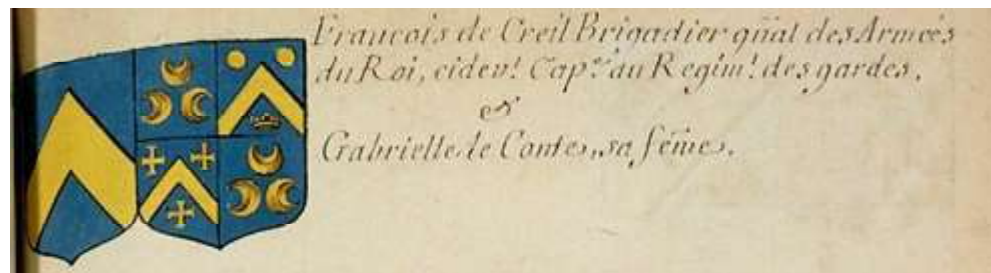 Francois de Creil Brigadier gñal des Armées
du Roi, cideu.t Cap.ne au Regim.t des gardes,
&
Gabrielle de Conte, sa féme.